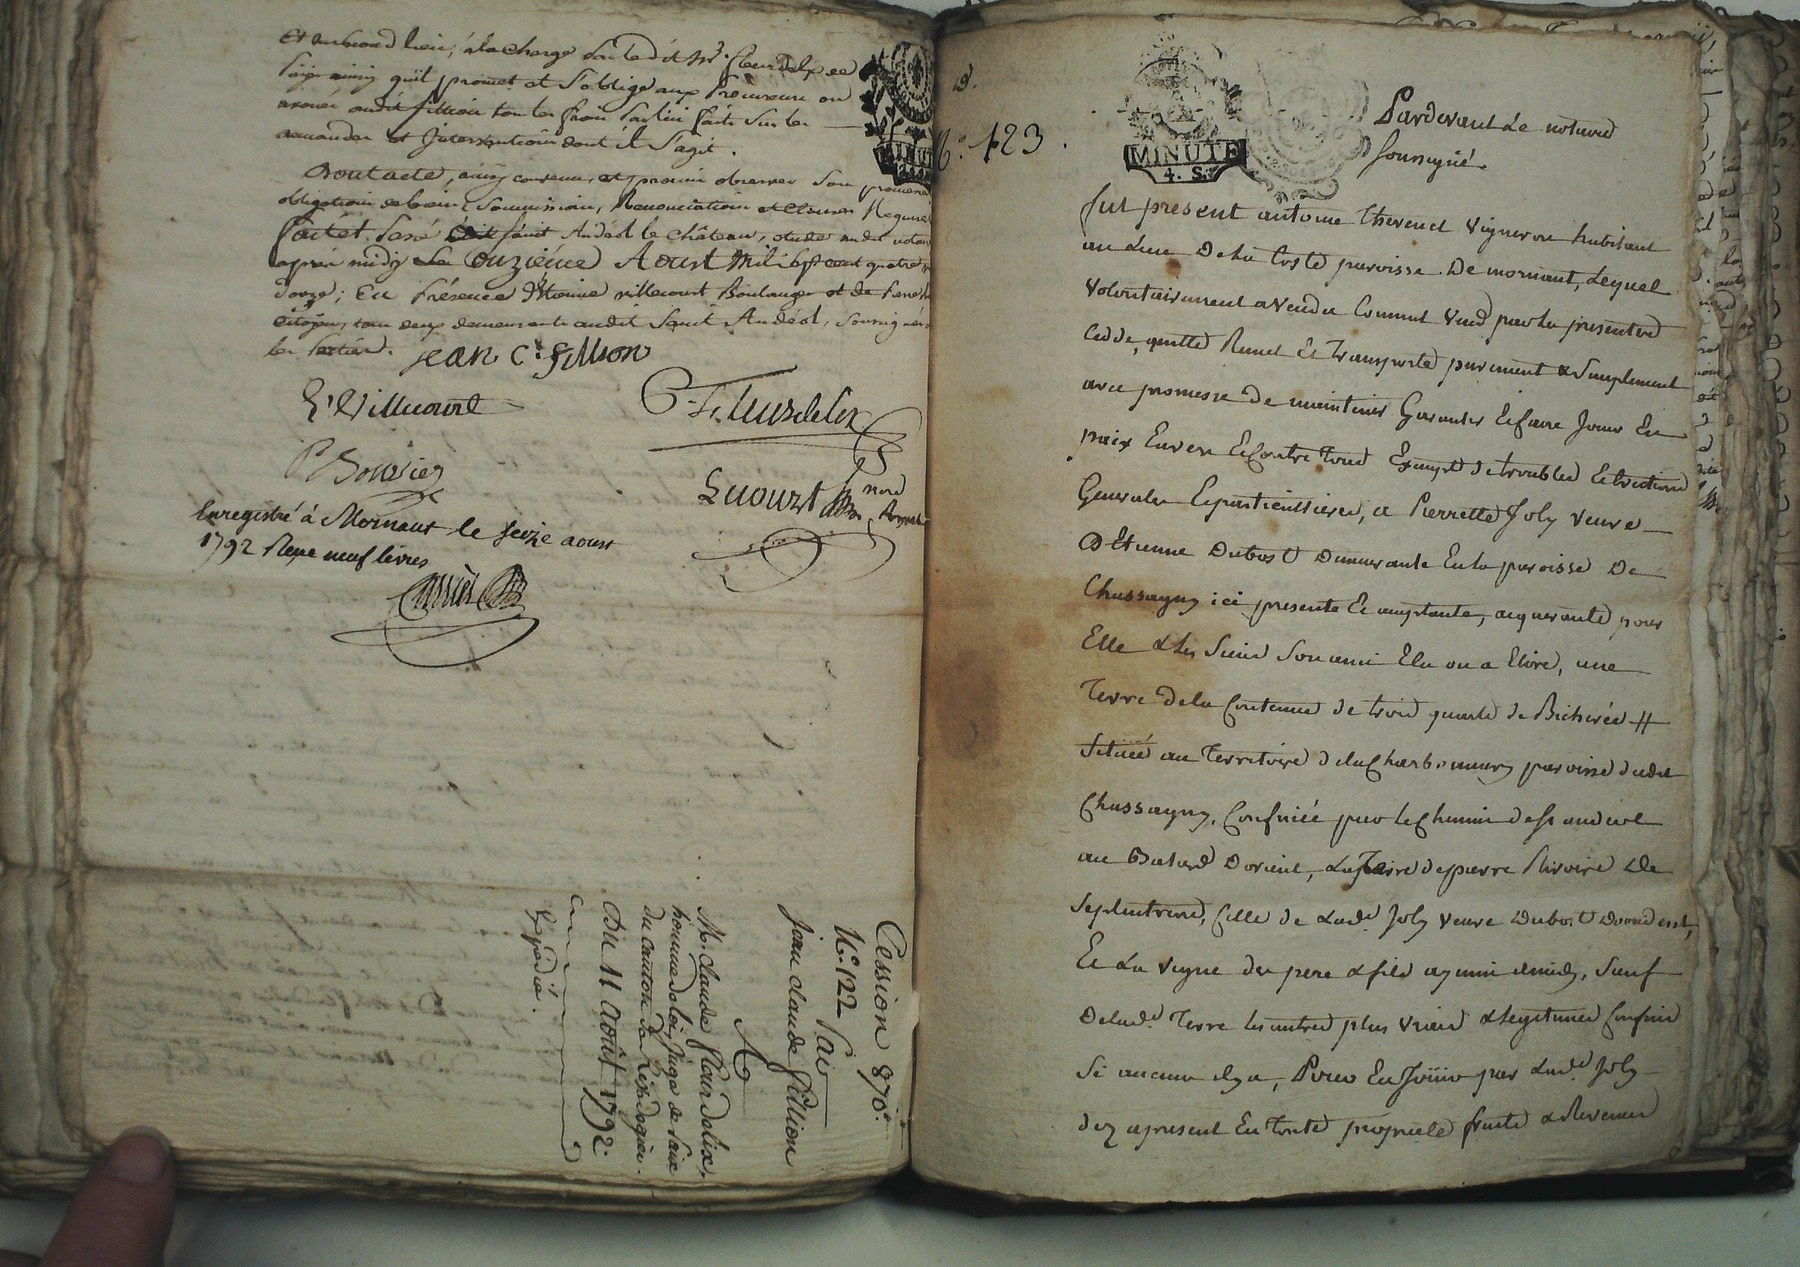 Et au second lieu, à la charge par le dit Sr. fleurdelix de
qu'il promet et s'oblige aux
audit fillion tous les frais par lui faits sur les
demandes et Intervention dont il s'agit.
Dont acte, ainsi convenu, et promis observer sous
obligation de biens, soumission, Renonciation et clauses Requises
fait et passé audit saint Andéol le château, étude
après midy Le Onzième Aoust Mil sept cent quatre
douze; En présence d'Etienne villecourt Boulanger et de
citoyen, tous deux demeurants audit Saint Andéol, soussignés
les parties. jean C. fillion
E. Villecourt
C. Fleurdelix
P Bouvier
Lucourt nore
Enregistré à Mornant le seize aoust
1792 Reçu neuf livres
Cession 870.
N.° 122 Par
jean claude fillion
A
M. claude fleurdelix,
homme de loi, juge de Paix
du canton de
Du 11 août 1792.
Expédié.
N.° 123.
MINUTE
4. S.
Pardevant Le notaire
soussigné
fut présent antoine thevenet vigneron habitant
au Lieu De la Coste paroisse De mornant, Lequel
volontairement a vendu comme vend par la presente
cedde, quitte Remet Et transporte purement & simplement
avec promesse De maintenir Garantir Et faire Jouir En
paix Envers Et contre tous Exempt de troubles Et évictions
Generales Et particullieres, a Pierrette Joly veuve
D'Etienne Dubost Demeurante En la paroisse De
Chassagny ici presente Et acceptante, acquerante pour
Elle & les siens son ami Elu ou a Elire, une
Terre de la Contenue de trois quarts de Bicherée #
Située au Territoire de la Charbonnery paroisse dudit
Chassagny, Confinée par le Chemin de st andéol
au Batard D'orient, La Terre de pierre Rivoire De
Septentrion, Celle de Lade. Joly veuve Dubost D'occident,
Et La vigne des pere & fils aymin de midy, Sauf
De lade. Terre les autres plus vrais & Legitimes Confins
Si aucuns il y a, Pour En Joüir par Lade. Joly
dez apresent En toute propriété fruits & Revenus